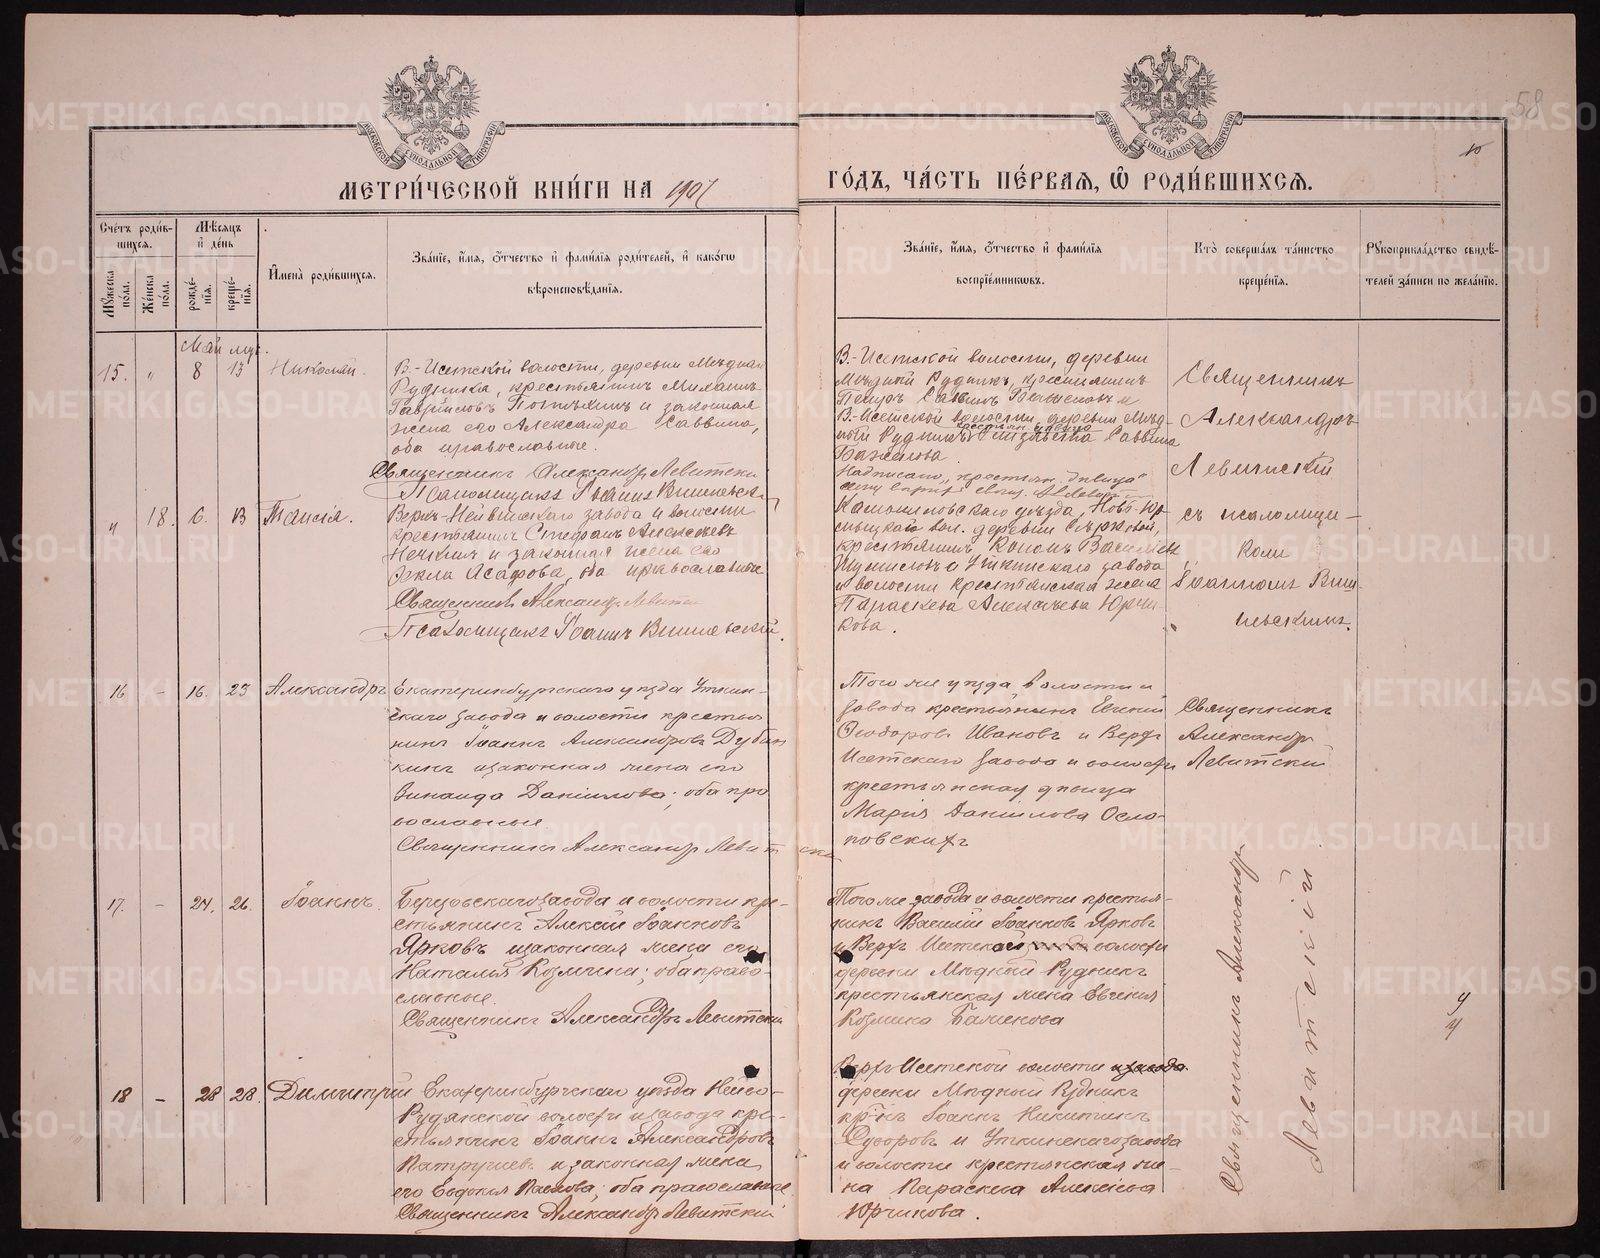 58
10
МОСКОВСКОЙ СѴНОДАЛЬНОЙ ТИПОГРАФІИ
МОСКОВСКОЙ СѴНОДАЛЬНОЙ ТИПОГРАФІИ
МЕТРИ́ЧЕСКОЙ КНИ́ГИ НА 1907
ГО́ДЪ, ЧА́СТЬ ПЕ́РВАЯ, Ѡ҆ РОДИ́ВШИХСЯ.
Сче́тъ роди́в-
шихся.
Мꙋ́жеска по́ла.
Же́нска по́ла.
Мѣ́сяцъ и҆ де́нь
рожде́-
нїя.
креще́-
нїя.
И҆мена̀ роди́вшихся.
Зва́нїе, и҆́мя, ѻ҆́тчество и҆ фами́лїя роди́телей, и҆ како́гѡ
вѣроисповѣ́данїя.
Зва́нїе, и҆́мя, ѻ҆́тчество и҆ фами́лїя
воспрїе́мникѡвъ.
Кто̀ соверша́лъ та́инство
креще́нїя.
Рꙋкоприкла́дство свидѣ́-
телей за́писи по жела́нїю.
Май мѣс.
15. " 8 13 Николай.
В.-Исетской волости, деревни Мѣднаго
Рудника, крестьянинъ Михаилъ
Гавріиловъ и законная
жена его Александра Саввина,
оба православные.
Священникъ Александръ Левитскій
Псаломщикъ Іоаннъ Вишневскій
В.-Исетской волости, деревни
Мѣдный Рудникъ, крестьянинъ
Петръ Саввинъ Баженовъ и
В.-Исетской волости, деревни Мѣд-
ный Рудникъ крестьян. дѣвица Елизавета Саввина
Баженова.
Надписано "крестьян. дѣвица"
Священникъ
Александръ
Левитскій
съ псаломщи-
комъ
Іоанномъ Виш-
невскимъ.
" 18. 6. 13 Таисія.
Верхъ-Нейвинскаго завода и волости
крестьянинъ Стефанъ Алексѣевъ
и законная жена его
Ѳекла Асафова, оба православные
Священникъ Александръ Левитскій
Псаломщикъ Іоаннъ Вишневскій.
Камышловскаго уѣзда,
вол. деревни
крестьянинъ Кононъ Василіевъ
Шумиловъ и Уткинскаго завода
и волости крестьянская жена
Параскева Алексѣева Юрчи-
кова.
16 - 16. 23 Александръ
Екатеринбургскаго уѣзда Уткин-
скаго завода и волости крестья
нинъ Іоаннъ Александровъ Дубин
кинъ и законная жена его
Зинаида Даніилова; оба пра
вославные
Священникъ Александръ Левитскій
Того же уѣзда волости и
завода крестьянинъ Евгеній
Ѳеодоровъ Ивановъ и Верхъ
Исетскаго завода и волости
крестьянская дѣвица
Марія Даніилова Осло-
повскихъ
Священникъ
Александръ
Левитскій
17. - 24. 26. Іоаннъ.
Березовскаго завода и волости кре-
стьянинъ Алексій Іоанновъ
Ярковъ и законная жена его
Наталья Козмина; оба право-
славные.
Священникъ Александръ Левитскій
Того же завода и волости крестья-
нинъ Василій Іоанновъ Ярковъ
и Верхъ Исетской волости
деревни Мѣдный Рудникъ
крестьянская жена Евгенія
Козмина Баженова
Священникъ Александръ
Левитскій
18 - 28 28. Димитрій
Екатеринбургскаго уѣзда Нейво-
Рудянской волости и завода кре-
стьянинъ Іоаннъ Александровъ
Патрушевъ и законная жена
его Евдокія Павлова; оба православные
Священникъ Александръ Левитскій
Верхъ Исетской волости и завода
деревни Мѣдный Рудникъ
кр-нъ Іоаннъ Никитинъ
Суворовъ и Уткинскаго завода
и волости крестьянская же-
на Параскева Алексіева
Юрчикова.